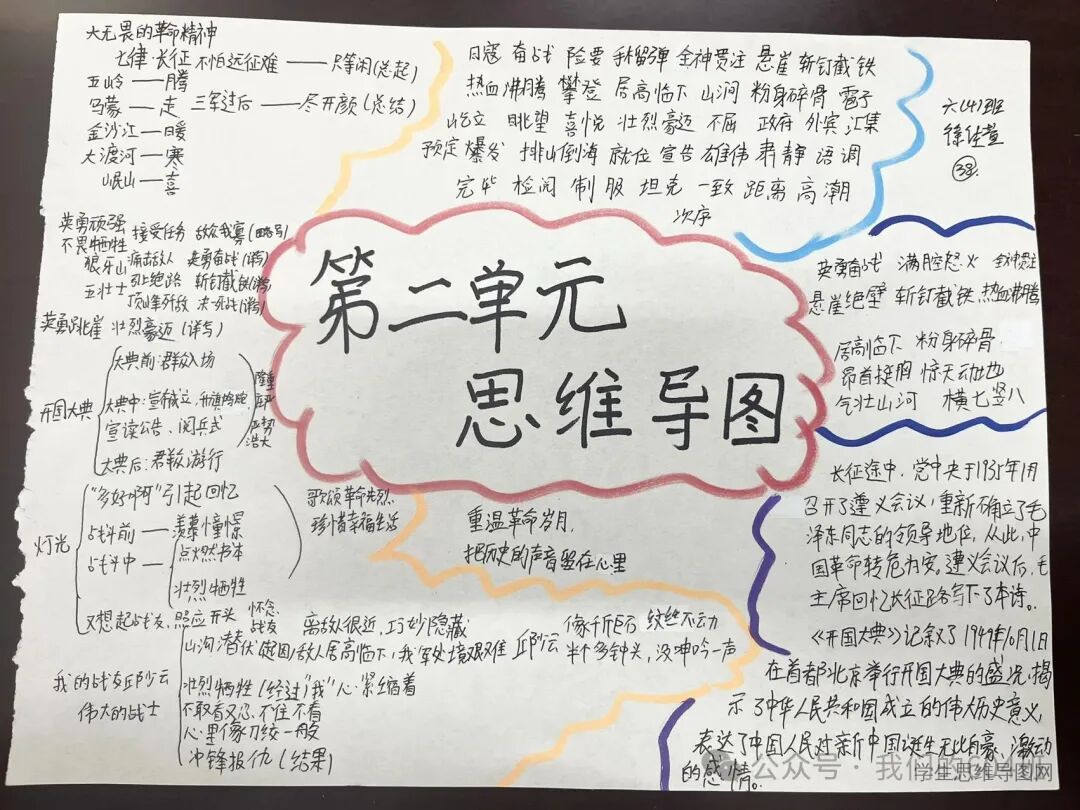 大无畏的革命精神
七律·长征 不怕远征难——只等闲(总起)
五岭——腾
乌蒙——走 三军过后——尽开颜(总结)
金沙江——暖
大渡河——寒
岷山——喜
日寇 奋战 险要 手榴弹 全神贯注 悬崖 斩钉截铁
热血沸腾 攀登 居高临下 山涧 粉身碎骨 雹子
屹立 眺望 喜悦 壮烈豪迈 不屈 政府 外宾 汇集
预定 爆发 排山倒海 就位 宣告 雄伟 肃静 语调
完毕 检阅 制服 坦克 一致 距离 高潮
次序
六(4)班
徐佳萱
38
英勇顽强
不畏牺牲
接受任务 敌众我寡(略写)
狼牙山
五壮士
痛击敌人 英勇奋战(详写)
引上绝路 斩钉截铁(详写)
顶峰歼敌 决死战(详写)
英勇跳崖 壮烈豪迈(详写)
英勇奋战 满腔怒火 全神贯注
悬崖绝壁 斩钉截铁 热血沸腾
居高临下 粉身碎骨
昂首挺胸 惊天动地
气壮山河 横七竖八
第二单元
思维导图
开国大典
大典前:群众入场
大典中:宣布成立、升旗鸣炮
宣读公告、阅兵式
大典后:群众游行
隆重
庄严
气势
浩大
灯光
"多好啊"引起回忆
战斗前——羡慕憧憬
战斗中——点燃书本
壮烈牺牲
又想起战友,照应开头
怀念
战友
歌颂革命先烈,
珍惜幸福生活
重温革命岁月,
把历史的声音留在心里
我的战友邱少云
伟大的战士
离敌人很近,巧妙隐藏
山沟潜伏(起因)敌人居高临下,我军处境艰难
邱少云
像千斤巨石 纹丝不动
半个多钟头,没呻吟一声
壮烈牺牲(经过)"我"心紧缩着
不敢看又忍不住不看
心里像刀绞一般
冲锋报仇(结果)
长征途中,党中央于1935年1月
召开了遵义会议,重新确立了毛
泽东同志的领导地位,从此,中
国革命转危为安,遵义会议后,毛
主席回忆长征路写下了本诗。
《开国大典》记叙了1949年10月1日
在首都北京举行开国大典的盛况,揭
示了中华人民共和国成立的伟大历史意义,
表达了中国人民对新中国诞生无比自豪、激动
的感情。
公众号·我们的604班
学生思维导图网